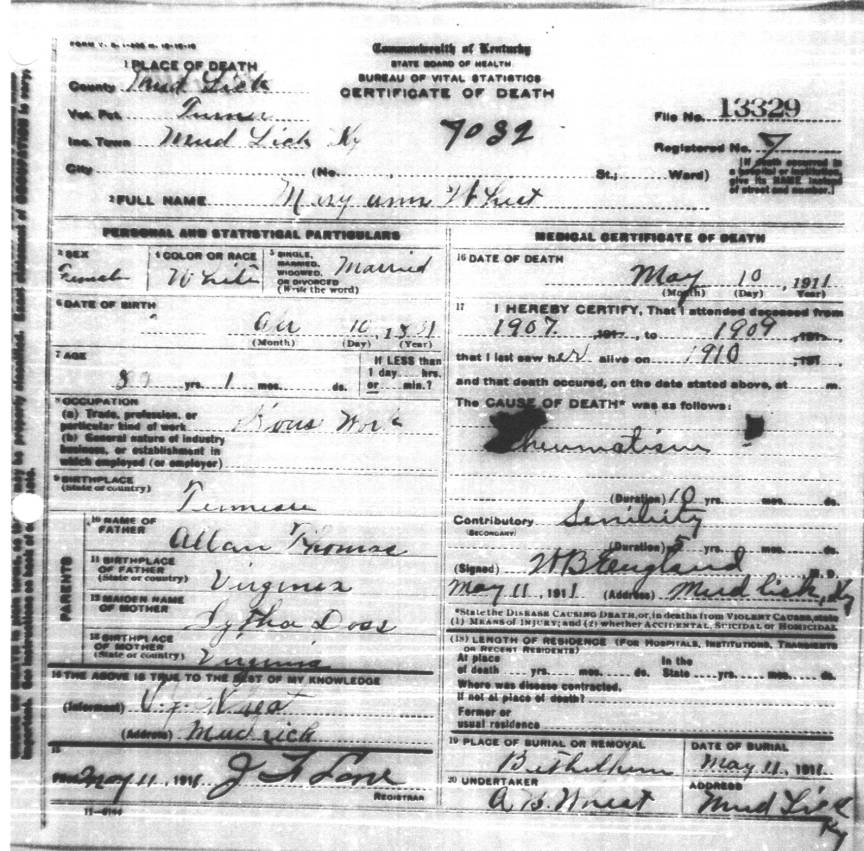 FORM V. S. 1-
Commonwealth of Kentucky
STATE BOARD OF HEALTH
BUREAU OF VITAL STATISTICS
CERTIFICATE OF DEATH
1 PLACE OF DEATH
County Mud Lick
Vot. Pct. Turner
Inc. Town Mud Lick Ky
7032
File No. 13329
Registered No. 7
City (No. , St.; Ward)
[If death occurred in a hospital or institution, give its NAME instead of street and number.]
2 FULL NAME Mary ann
PERSONAL AND STATISTICAL PARTICULARS
3 SEX Female
4 COLOR OR RACE White
5 SINGLE, MARRIED, WIDOWED, OR DIVORCED (Write the word) Married
6 DATE OF BIRTH
10, 1831
(Month) (Day) (Year)
7 AGE
yrs. 1 mos. ds.
If LESS than 1 day.... hrs. or .... min.?
8 OCCUPATION
(a) Trade, profession, or particular kind of work Hous Work
(b) General nature of industry business, or establishment in which employed (or employer)
9 BIRTHPLACE
(State or country)
10 NAME OF FATHER Allan Thomas
11 BIRTHPLACE OF FATHER (State or country) Virginia
12 MAIDEN NAME OF MOTHER Doss
13 BIRTHPLACE OF MOTHER (State or country) Virginia
PARENTS
14 THE ABOVE IS TRUE TO THE BEST OF MY KNOWLEDGE
(Informant)
(Address) Mud Lick
15
May 11, 1911
REGISTRAR
11-6144
MEDICAL CERTIFICATE OF DEATH
16 DATE OF DEATH
May 10, 1911
(Month) (Day) (Year)
17 I HEREBY CERTIFY, That I attended deceased from
1907, 191 , to 1909, 191 ,
that I last saw her alive on 1910, 191
and that death occured, on the date stated above, at m.
The CAUSE OF DEATH* was as follows:
Rheumatism
(Duration) 10 yrs. mos. ds.
Contributory Senility
(SECONDARY)
(Duration) 5 yrs. mos. ds.
(Signed) W B England M. D.
May 11, 1911 (Address) Mud lick, Ky
*State the DISEASE CAUSING DEATH, or, in deaths from VIOLENT CAUSES, state
(1) MEANS OF INJURY; and (2) whether ACCIDENTAL, SUICIDAL or HOMICIDAL
(18) LENGTH OF RESIDENCE (FOR HOSPITALS, INSTITUTIONS, TRANSIENTS OR RECENT RESIDENTS)
At place of death .... yrs. .... mos. .... ds. In the State .... yrs. .... mos. .... ds.
Where was disease contracted,
If not at place of death?
Former or
usual residence
19 PLACE OF BURIAL OR REMOVAL
DATE OF BURIAL
May 11, 1911
20 UNDERTAKER
ADDRESS
Mud Lick
Ky